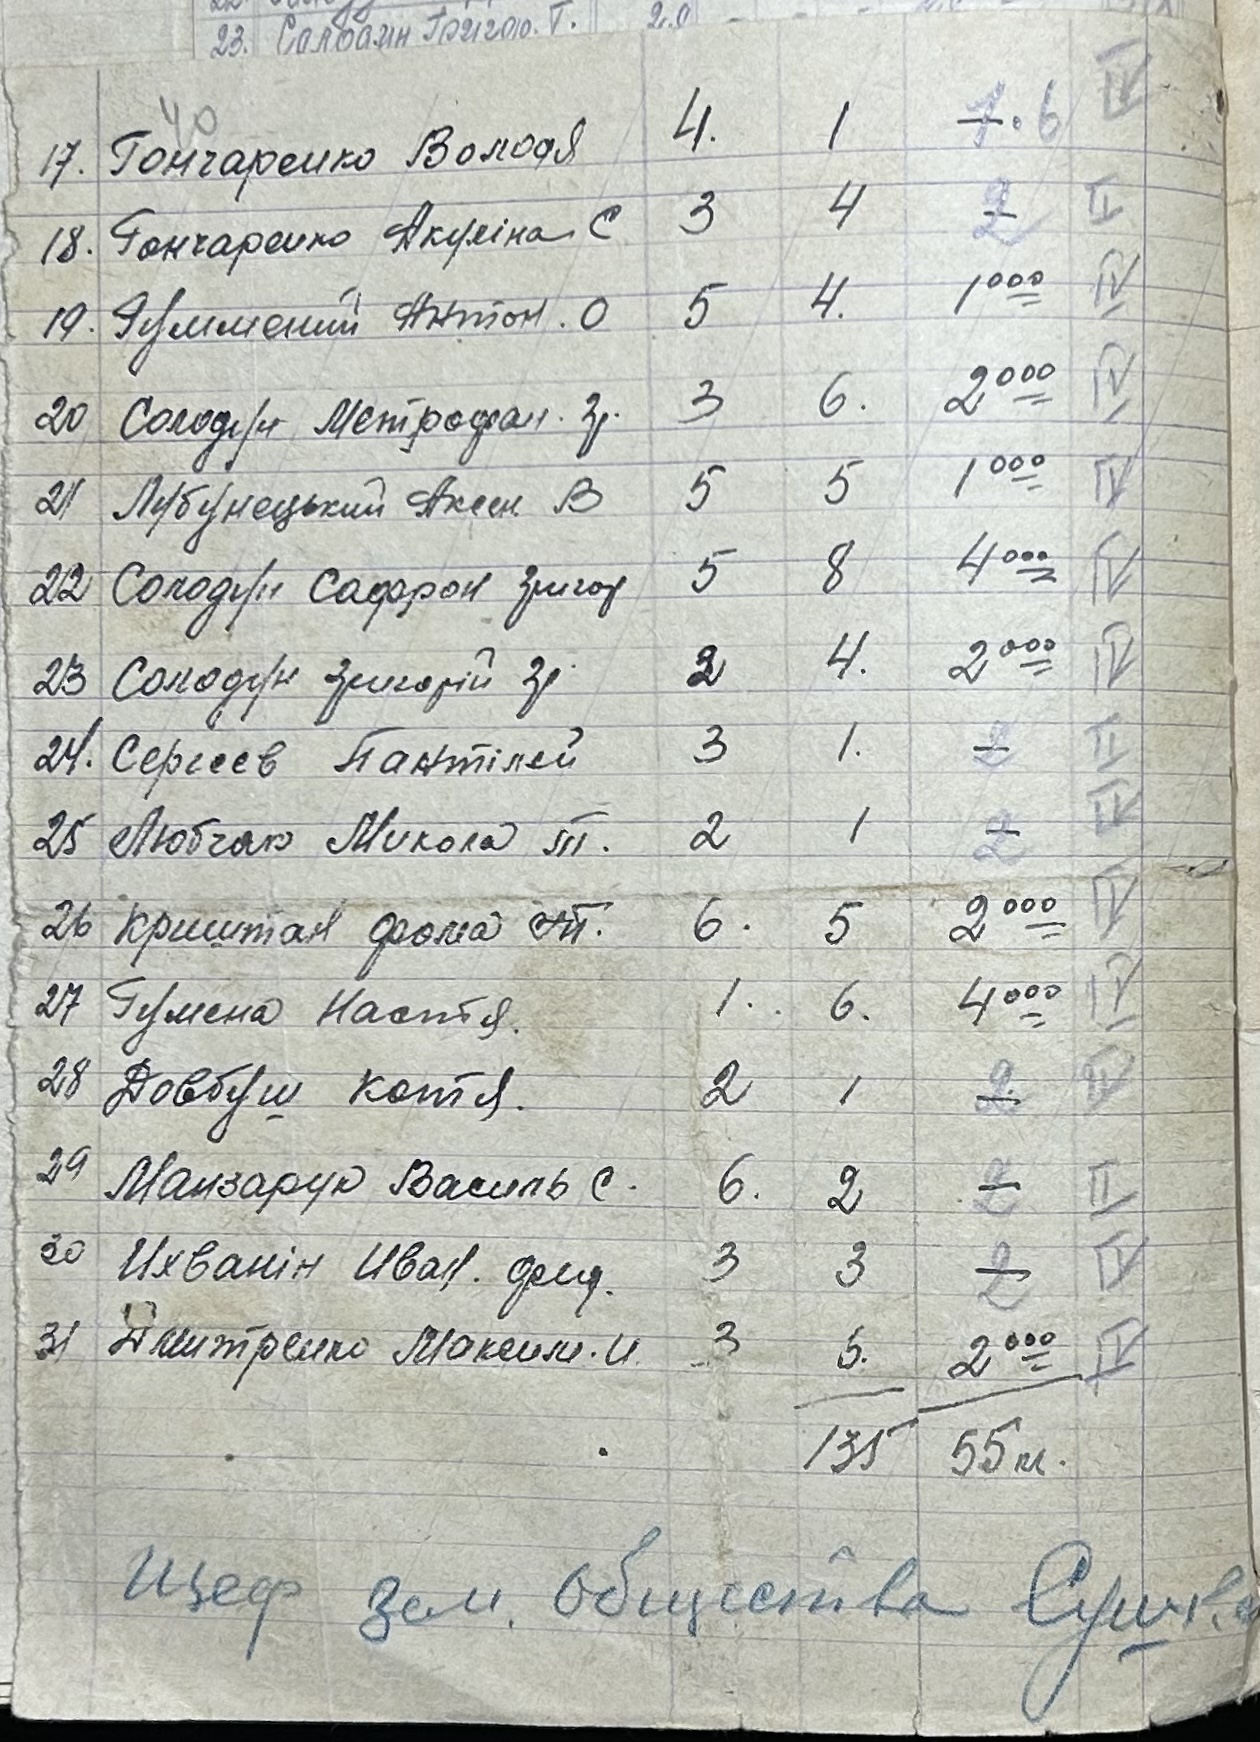 23. Салбаин Григор. Т. 2.0
40
17. Гончаренко Володя 4. 1 7. 6 IV
18. Гончаренко Акуліна С 3 4 2 II
19. Гуммений Антон. О 5 4. 1000 IV
20 Солодун Метрофан. Гр. 3 6. 2000 IV
21 Лубунецький Аксен. В 5 5 1000 IV
22 Солодун Сафрон Григор 5 8 4000 IV
23 Солодун Григорій Гр 2 4. 2000 IV
24. Сергєєв Пантілей 3 1. 2 II
25 Любчак Микола Т. 2 1 2 IV
26 Криштал Фома Т. 6. 5 2000 IV
27 Гумена Настя. 1. 6. 4000 IV
28 Довбуш Котя. 2 1 2 IV
29 Манзарук Василь С. 6. 2 2 II
30 Ихванін Иван. Фед. 3 3 2 IV
31 Дмитренко Максим. И. 3 5. 2000 IV
135 55 м.
Шеф Зем. Общества